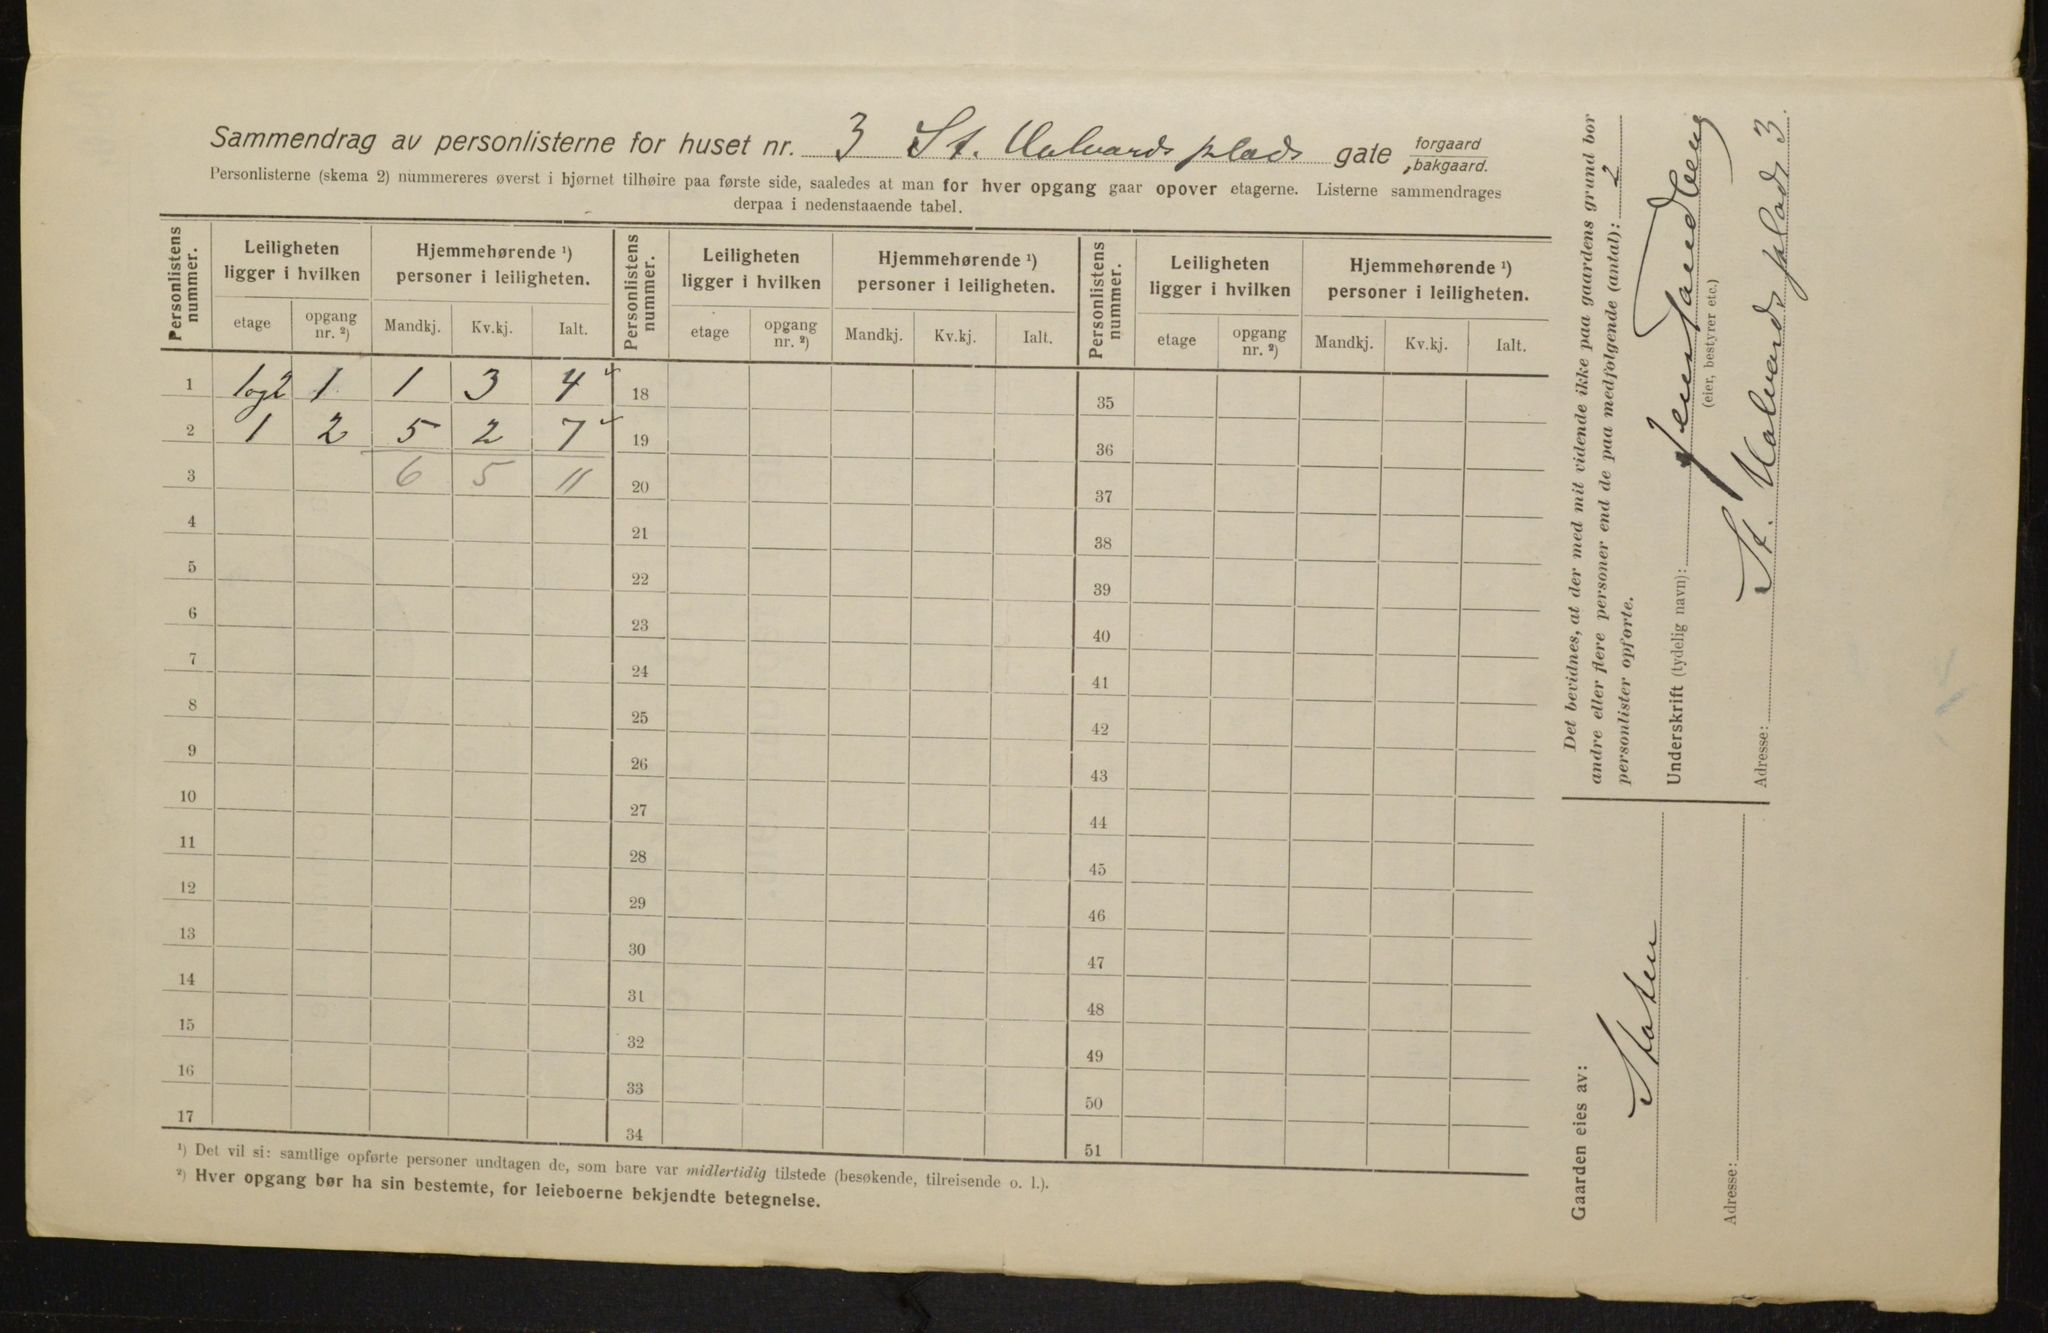 Sammendrag av personlisterne for huset nr. 3 St. Halvards plads gate forgaard bakgaard.
Personlisterne (skema 2) nummereres øverst i hjørnet tilhøire paa første side, saaledes at man for hver opgang gaar opover etagerne. Listerne sammendrages
derpaa i nedenstaaende tabel.
Personlistens nummer. Leiligheten ligger i hvilken Hjemmehørende ¹) personer i leiligheten. Personlistens nummer. Leiligheten ligger i hvilken Hjemmehørende ¹) personer i leiligheten. Personlistens nummer. Leiligheten ligger i hvilken Hjemmehørende ¹) personer i leiligheten.
etage opgang nr. ²) Mandkj. Kv.kj. Ialt. etage opgang nr. ²) Mandkj. Kv.kj. Ialt. etage opgang nr. ²) Mandkj. Kv.kj. Ialt.
1 1og2 1 1 3 4 18 35
2 1 2 5 2 7 19 36
3 6 5 11 20 37
4 21 38
5 22 39
6 23 40
7 24 41
8 25 42
9 26 43
10 27 44
11 28 45
12 29 46
13 30 47
14 31 48
15 32 49
16 33 50
17 34 51
¹) Det vil si: samtlige opførte personer undtagen de, som bare var midlertidig tilstede (besøkende, tilreisende o. l.).
²) Hver opgang bør ha sin bestemte, for leieboerne bekjendte betegnelse.
Det bevidnes, at der med mit vidende ikke paa gaardens grund bor
andre eller flere personer end de paa medfølgende (antal): 2
personlister opførte.
Underskrift (tydelig navn):
(eier, bestyrer etc.)
Adresse: St. Halvards plads 3.
Gaarden eies av:
Staten
Adresse: